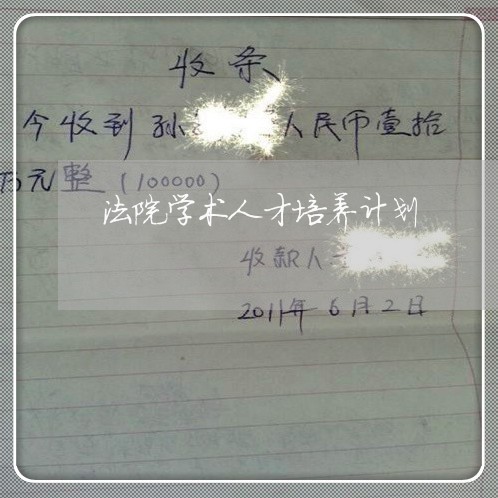 收条
今收到孙 人民币壹拾
万元整(100000)
法院学术人才培养计划
收款人
2011年6月2日